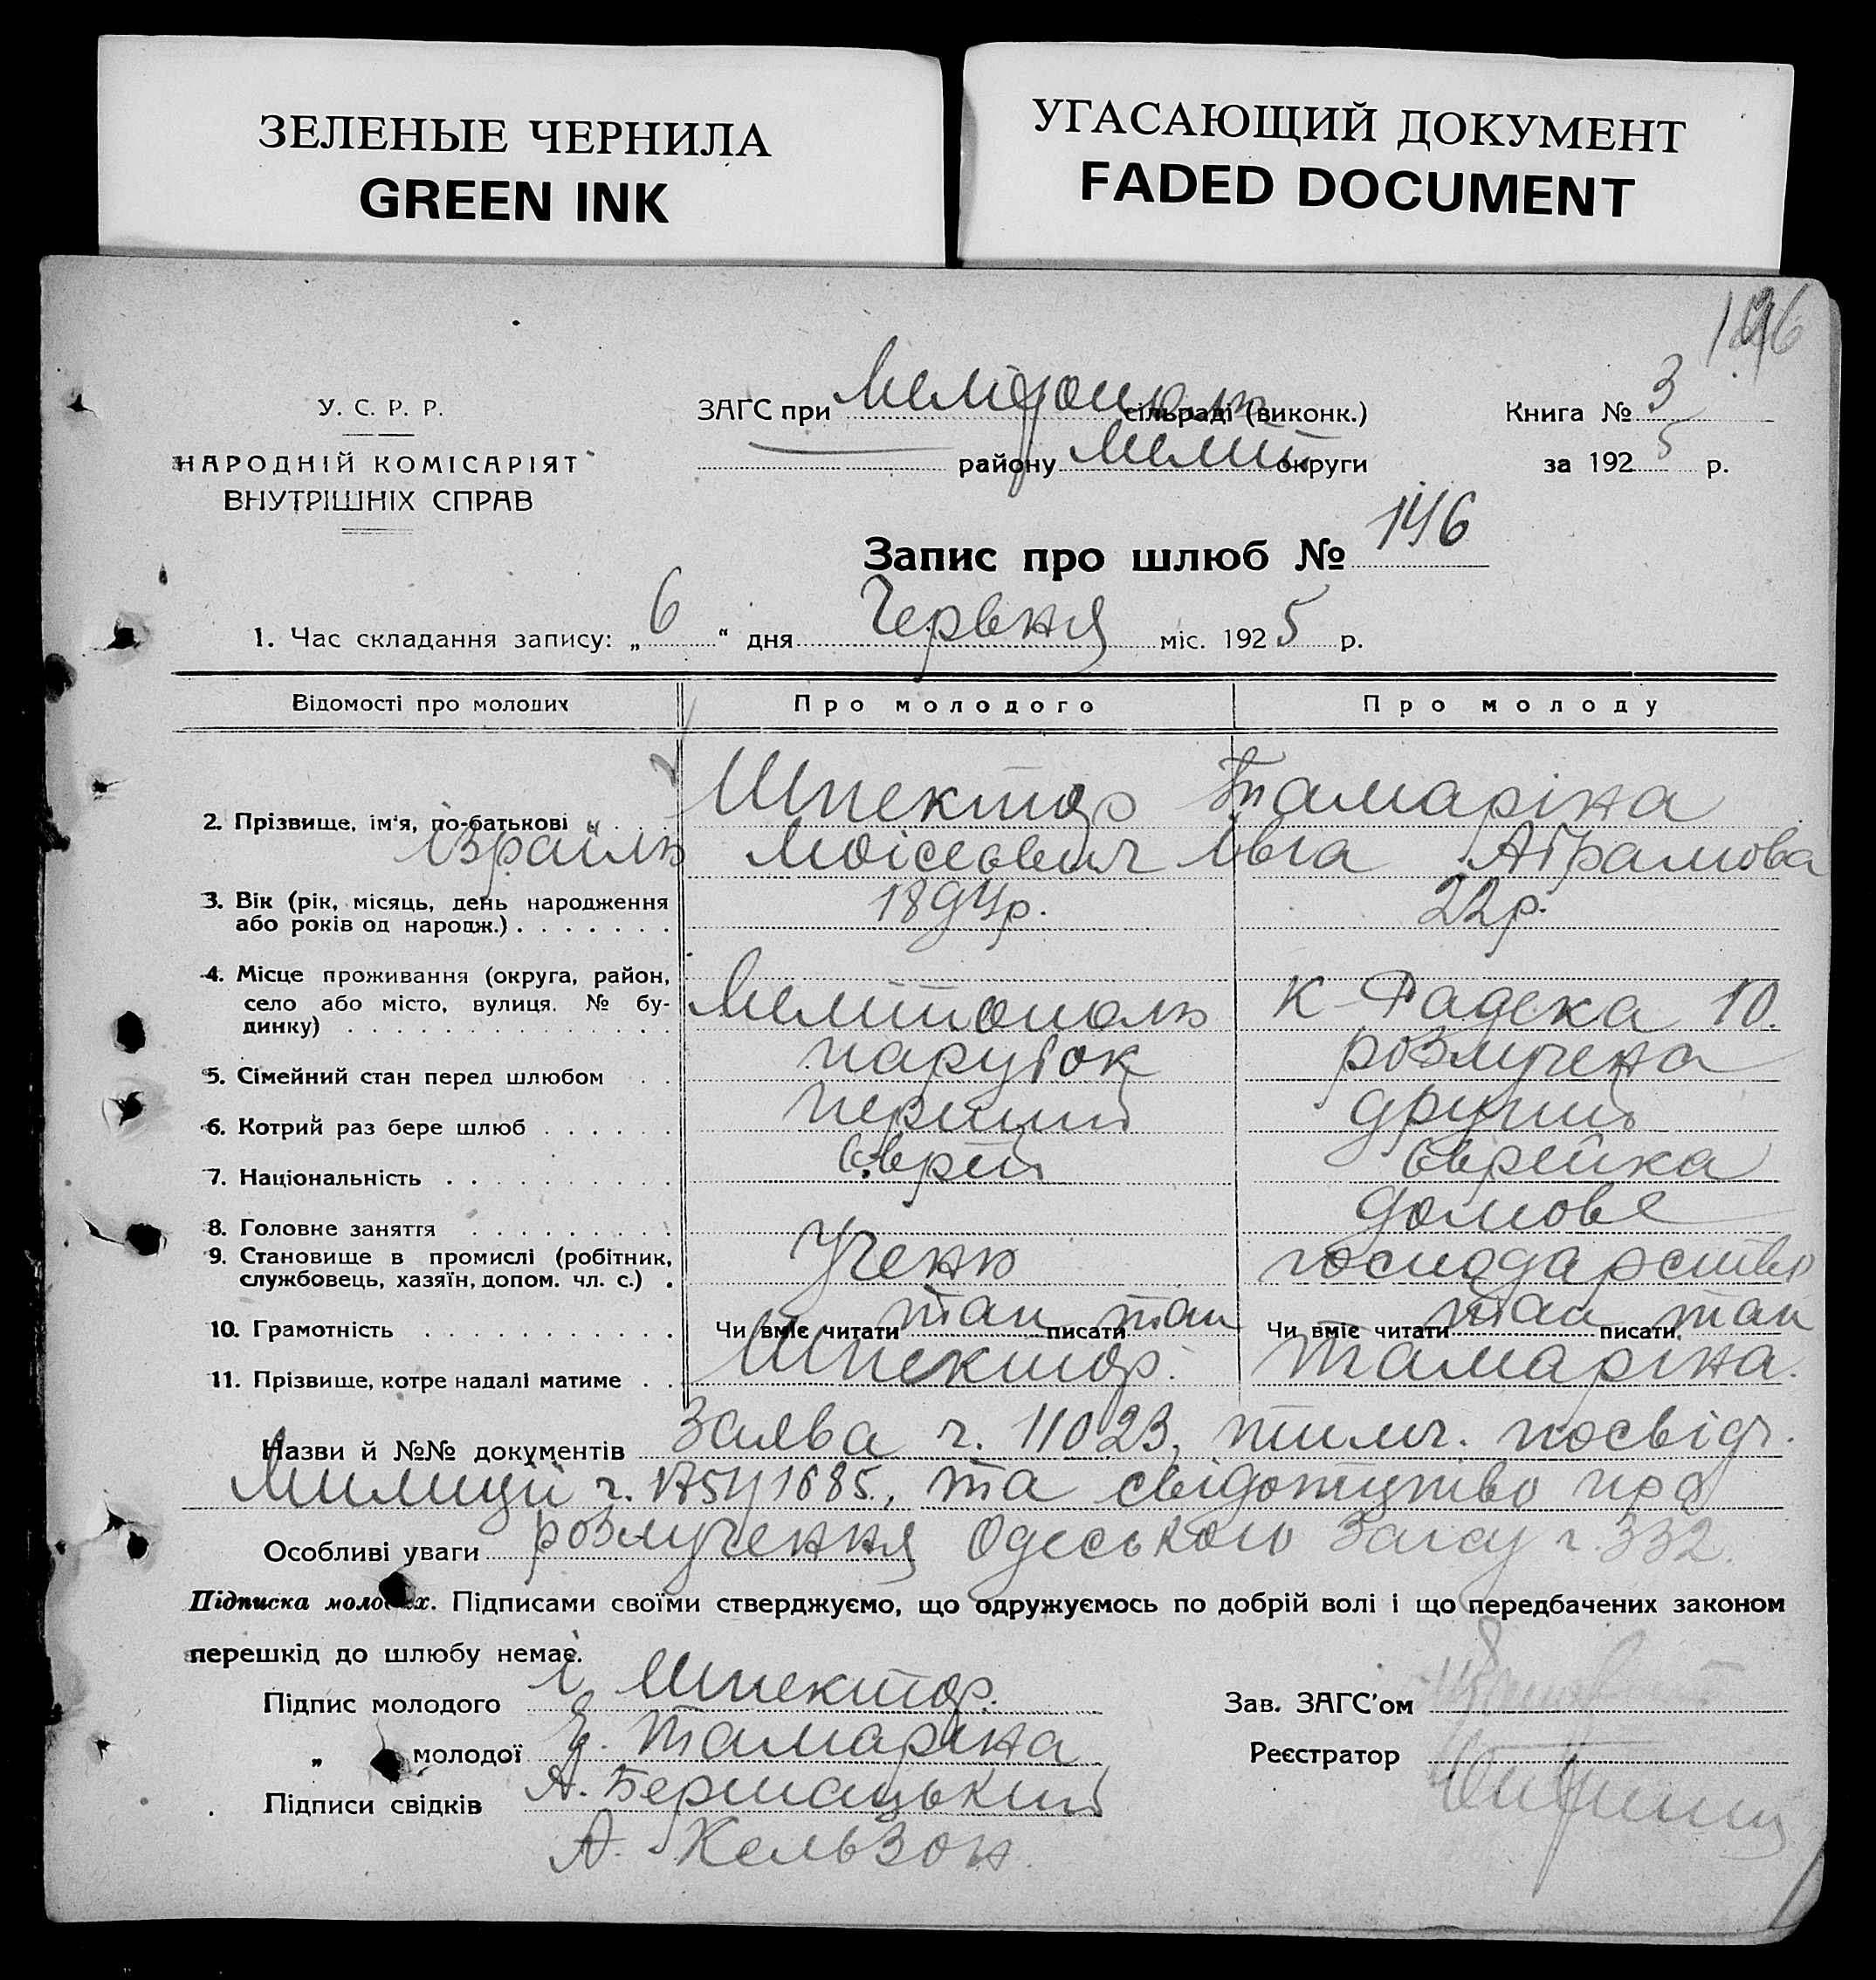 ЗЕЛЕНЫЕ ЧЕРНИЛА
GREEN INK
УГАСАЮЩИЙ ДОКУМЕНТ
FADED DOCUMENT
У. С. Р. Р.
НАРОДНІЙ КОМІСАРІЯТ
ВНУТРІШНІХ СПРАВ
ЗАГС при Мелітополь сільраді (виконк.)
району Меліт округи
Книга № 3
за 1925 р.
Запис про шлюб № 146
1. Час складання запису: „6“ дня Червня міс. 1925 р.
Відомості про молодих Про молодого Про молоду
2. Прізвище, ім'я, по-батькові Шпектор Тамаріна
Ізраїль Моісеович Абрамова
3. Вік (рік, місяць, день народження 1894р. 22р.
або років од народж.)
4. Місце проживання (округа, район,
село або місто, вулиця. № бу- Мелітополь К Радека 10.
динку)
5. Сімейний стан перед шлюбом парубок розлучена
6. Котрий раз бере шлюб перший другий
7. Національність Єврей Єврейка
8. Головне заняття домове
9. Становище в промислі (робітник, Учень господарство
службовець, хазяїн, допом. чл. с.)
10. Грамотність Чи вміє читати так писати так Чи вміє читати так писати так
11. Прізвище, котре надалі матиме Шпектор. Тамаріна.
Назви й №№ документів Заява ч. 11023, тимч. посвідч.
Милиції ч. 1685., та свідотцтво про
Особливі уваги розлучення Одеського Загсу ч. 332.
Підписка молодих. Підписами своїми стверджуємо, що одружуємось по добрій волі і що передбачених законом
перешкід до шлюбу немає.
Підпис молодого І Шпектор.
Зав. ЗАГС'ом
„ молодої Тамаріна
Реєстратор
Підписи свідків А. Бершацький
А. Кельзон